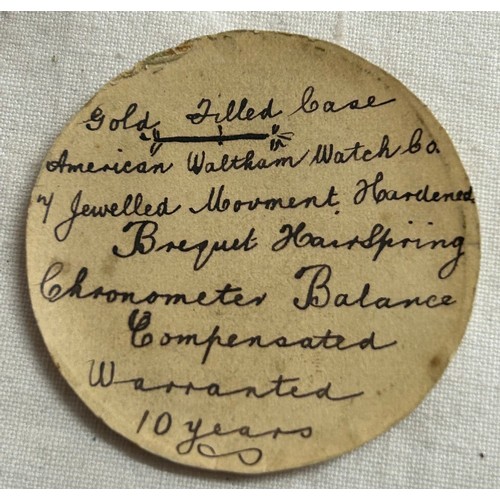 Gold Filled Case
American Waltham Watch Co.
7 Jewelled Movment Hardened
Brequet HairSpring
Chronometer Balance
Compensated
Warranted
10 years